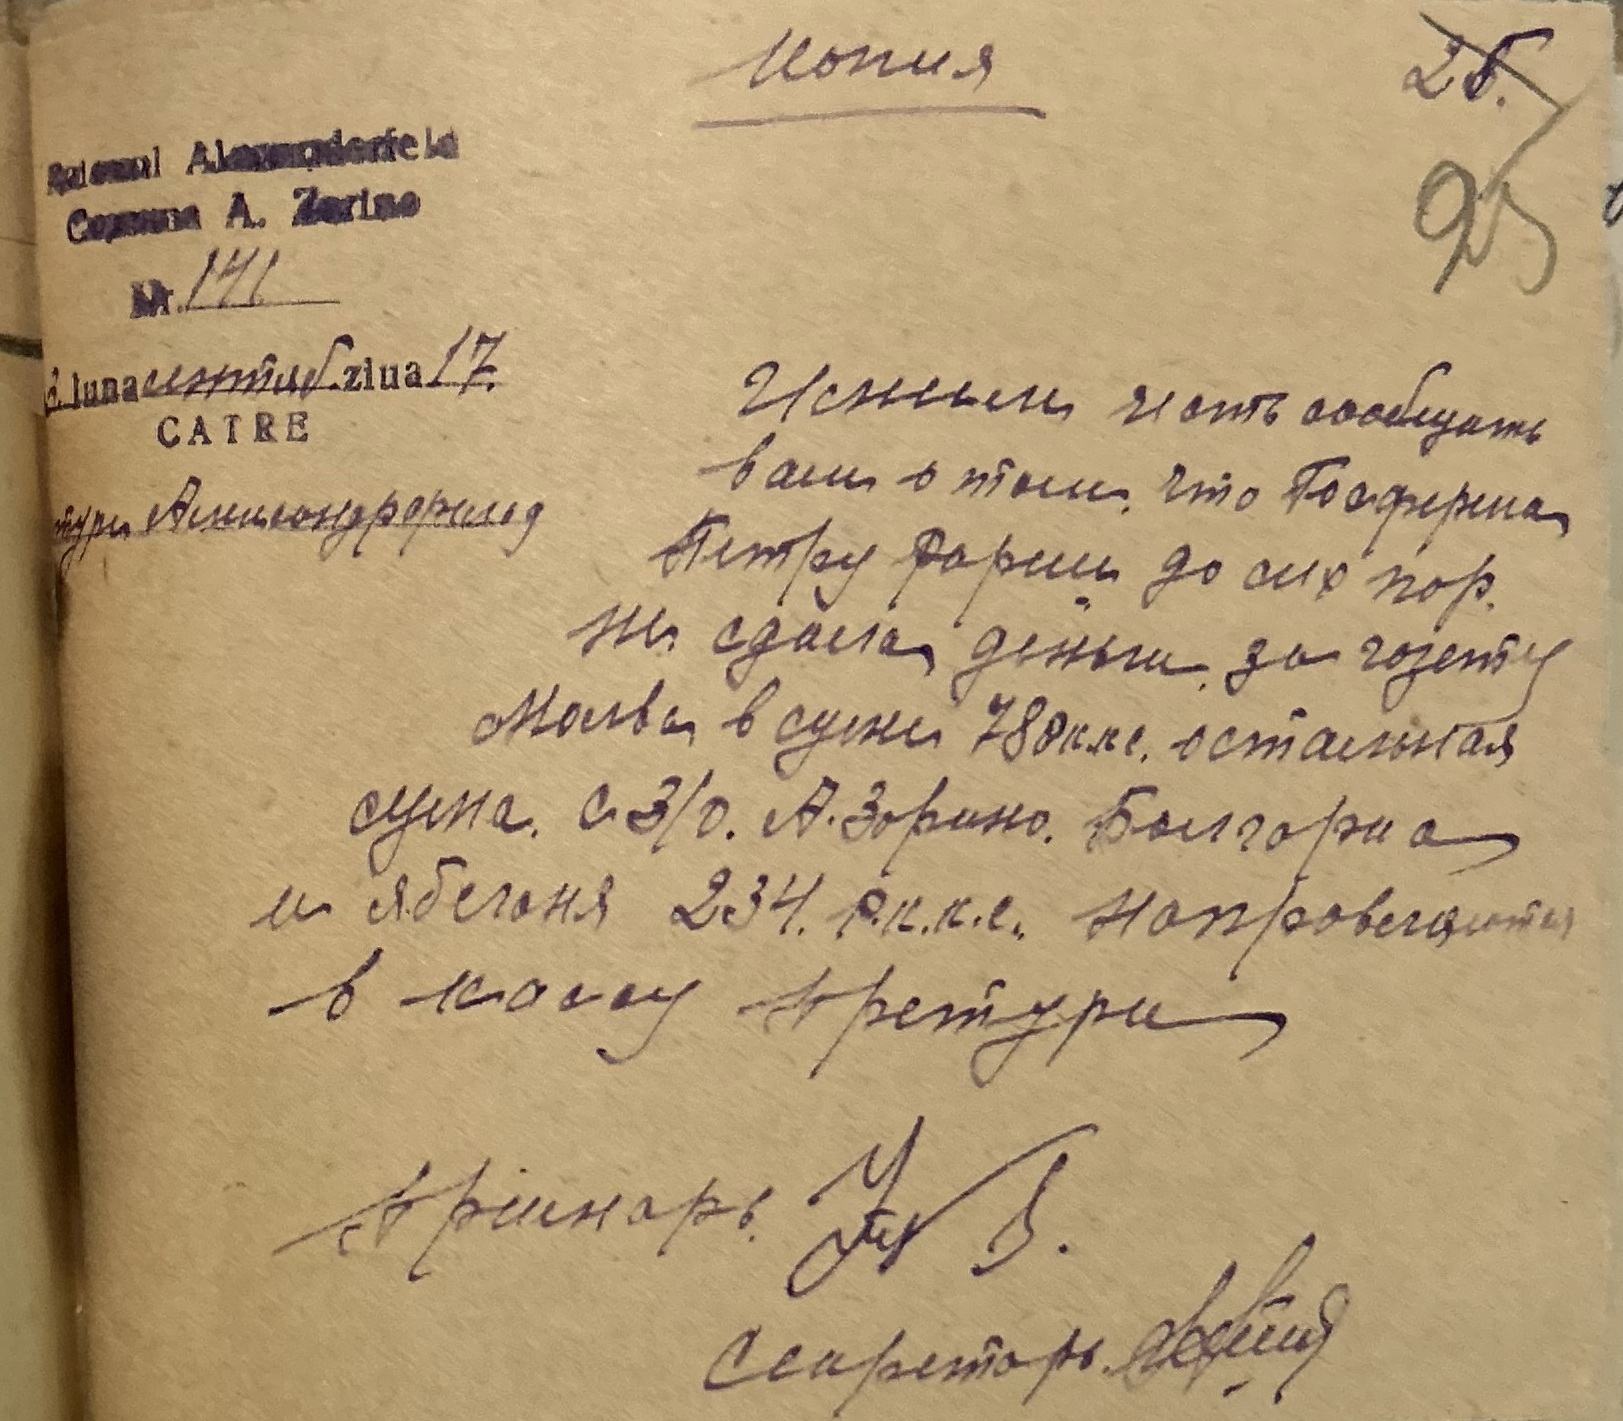 Копия
26.
95
Raionul Alexanderfeld
Comuna A. Zorino
Nr. 141
luna сентяб. ziua 17.
CATRE
Александерфельд
Исним честь сообщать
вам о том. что Госферма
Петру Рареш до сих пор.
не сдала деньги за газету
Молва в суме 780 к.к.с. остальная
сума. с З/О. А. Зорино. Болгария
и Ябегоня 234. р.к.к.с. направляится
в касу претури
примарь.
Секретарь.